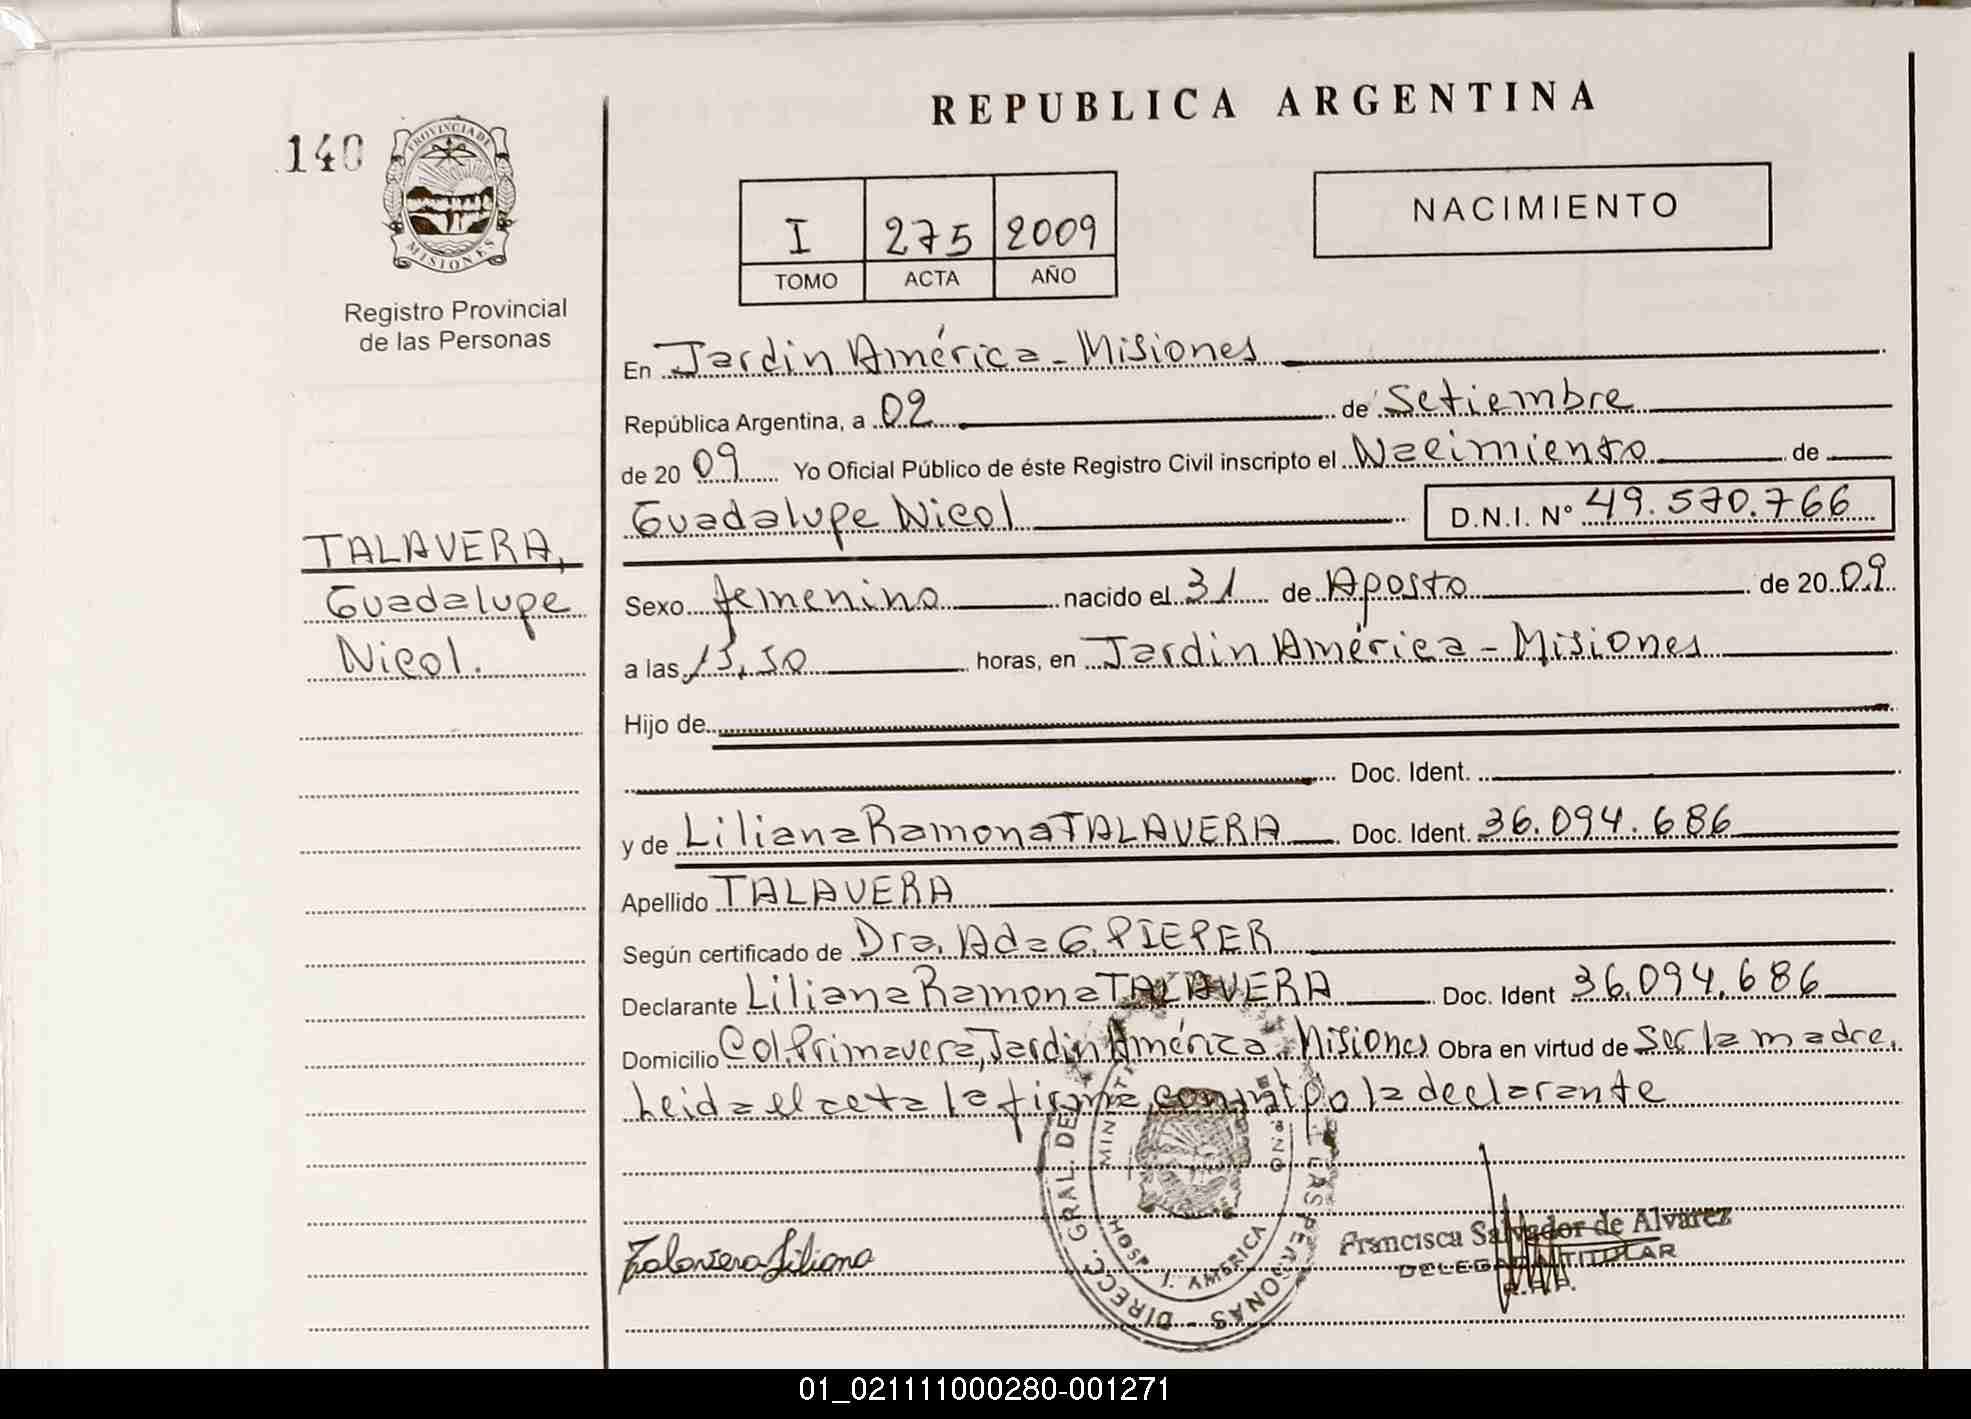 REPUBLICA ARGENTINA
140
PROVINCIA DE MISIONES
Registro Provincial
de las Personas
I 275 2009
TOMO ACTA AÑO
NACIMIENTO
TALAVERA,
Guadalupe
Nicol.
En Jardin América - Misiones
República Argentina, a 02 de Setiembre
de 2009 Yo Oficial Público de éste Registro Civil inscripto el Nacimiento de
Guadalupe Nicol D.N.I. Nº 49.570.766
Sexo femenino nacido el 31 de Agosto de 2009
a las horas, en Jardin América - Misiones
Hijo de
Doc. Ident.
y de Liliana Ramona TALAVERA Doc. Ident. 36.094.686
Apellido TALAVERA
Según certificado de Dra. Ada G. PIEPER
Declarante Liliana Ramona TALAVERA Doc. Ident 36.094.686
Domicilio Col. Primavera, Jardin América - Misiones Obra en virtud de Ser la madre.
Leida el acta la firma conmigo la declarante
DIRECC. GRAL. DE LAS PERSONAS
HOSP. J. AMERICA
Talavera Liliana
Francisca Salvador de Alvarez
DELEGADA TITULAR
01_021111000280-001271